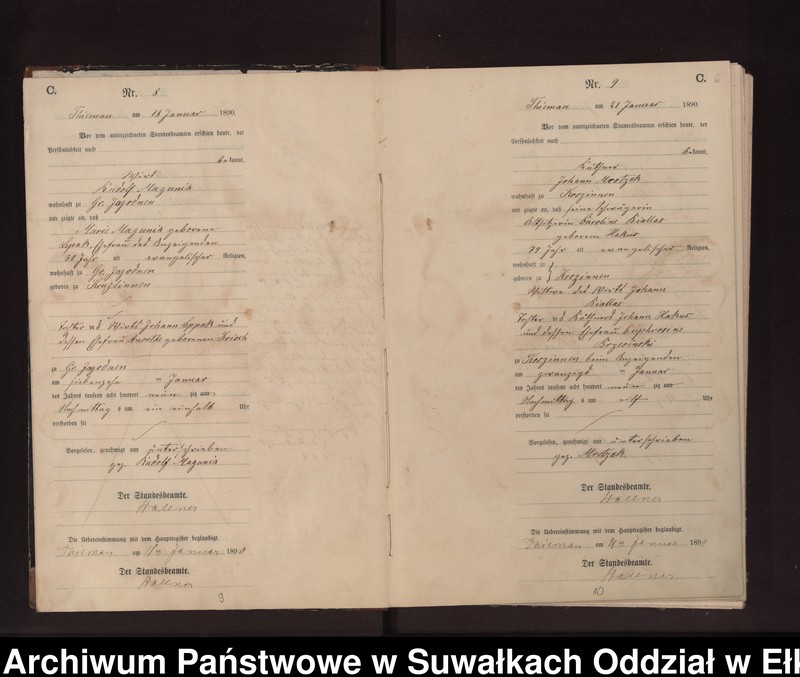 C.
Nr. 8
Thieman am 18 Januar 1890.
Vor dem unterzeichneten Standesbeamten erschien heute, der
Persönlichkeit nach
bekannt,
Wirt
Rudolf Magunia
wohnhaft zu Gr. Jagodnen
und zeigte an, daß
Marie Magunia geborene
Ehefrau des Anzeigenden
30 Jahr alt evangelischer Religion,
wohnhaft zu Gr. Jagodnen
geboren zu
Tochter Wirts Johann und
dessen Ehefrau geborenen
zu Gr. Jagodnen
am siebenzehn ten Januar
des Jahres tausend acht hundert neun zig und
Nachmittag s um ein einhalb Uhr
verstorben sei
Vorgelesen, genehmigt und unterschrieben
gez. Rudolf Magunia
Der Standesbeamte.
Wallner
Die Uebereinstimmung mit dem Hauptregister beglaubigt.
Thieman am 18ten Januar 1890
Der Standesbeamte.
Wallner
9
Nr. 9
C.
Thieman am 21 Januar 1890.
Vor dem unterzeichneten Standesbeamten erschien heute, der
Persönlichkeit nach
bekannt,
Käthner
Johann Mrotzek
wohnhaft zu Koszinnen
und zeigte an, daß seine Schwägerin
Altsitzerin Karoline Biallas
geborene Hakus
79 Jahr alt evangelischer Religion,
wohnhaft zu
geboren zu Koszinnen
Wittwe des Wirts Johann
Biallas
Tochter Käthners Johann Hakus
und dessen Ehefrau Euphrosine
Brzesinski
zu Koszinnen beim Anzeigenden
am zwanzigst ten Januar
des Jahres tausend acht hundert neun zig und
Nachmittag s um elf Uhr
verstorben sei
Vorgelesen, genehmigt und unterschrieben
gez. Mrotzek
Der Standesbeamte.
Wallner
Die Uebereinstimmung mit dem Hauptregister beglaubigt.
Thieman am 21ten Januar 1890
Der Standesbeamte.
Wallner
10
Archiwum Państwowe w Suwałkach Oddział w Ełk